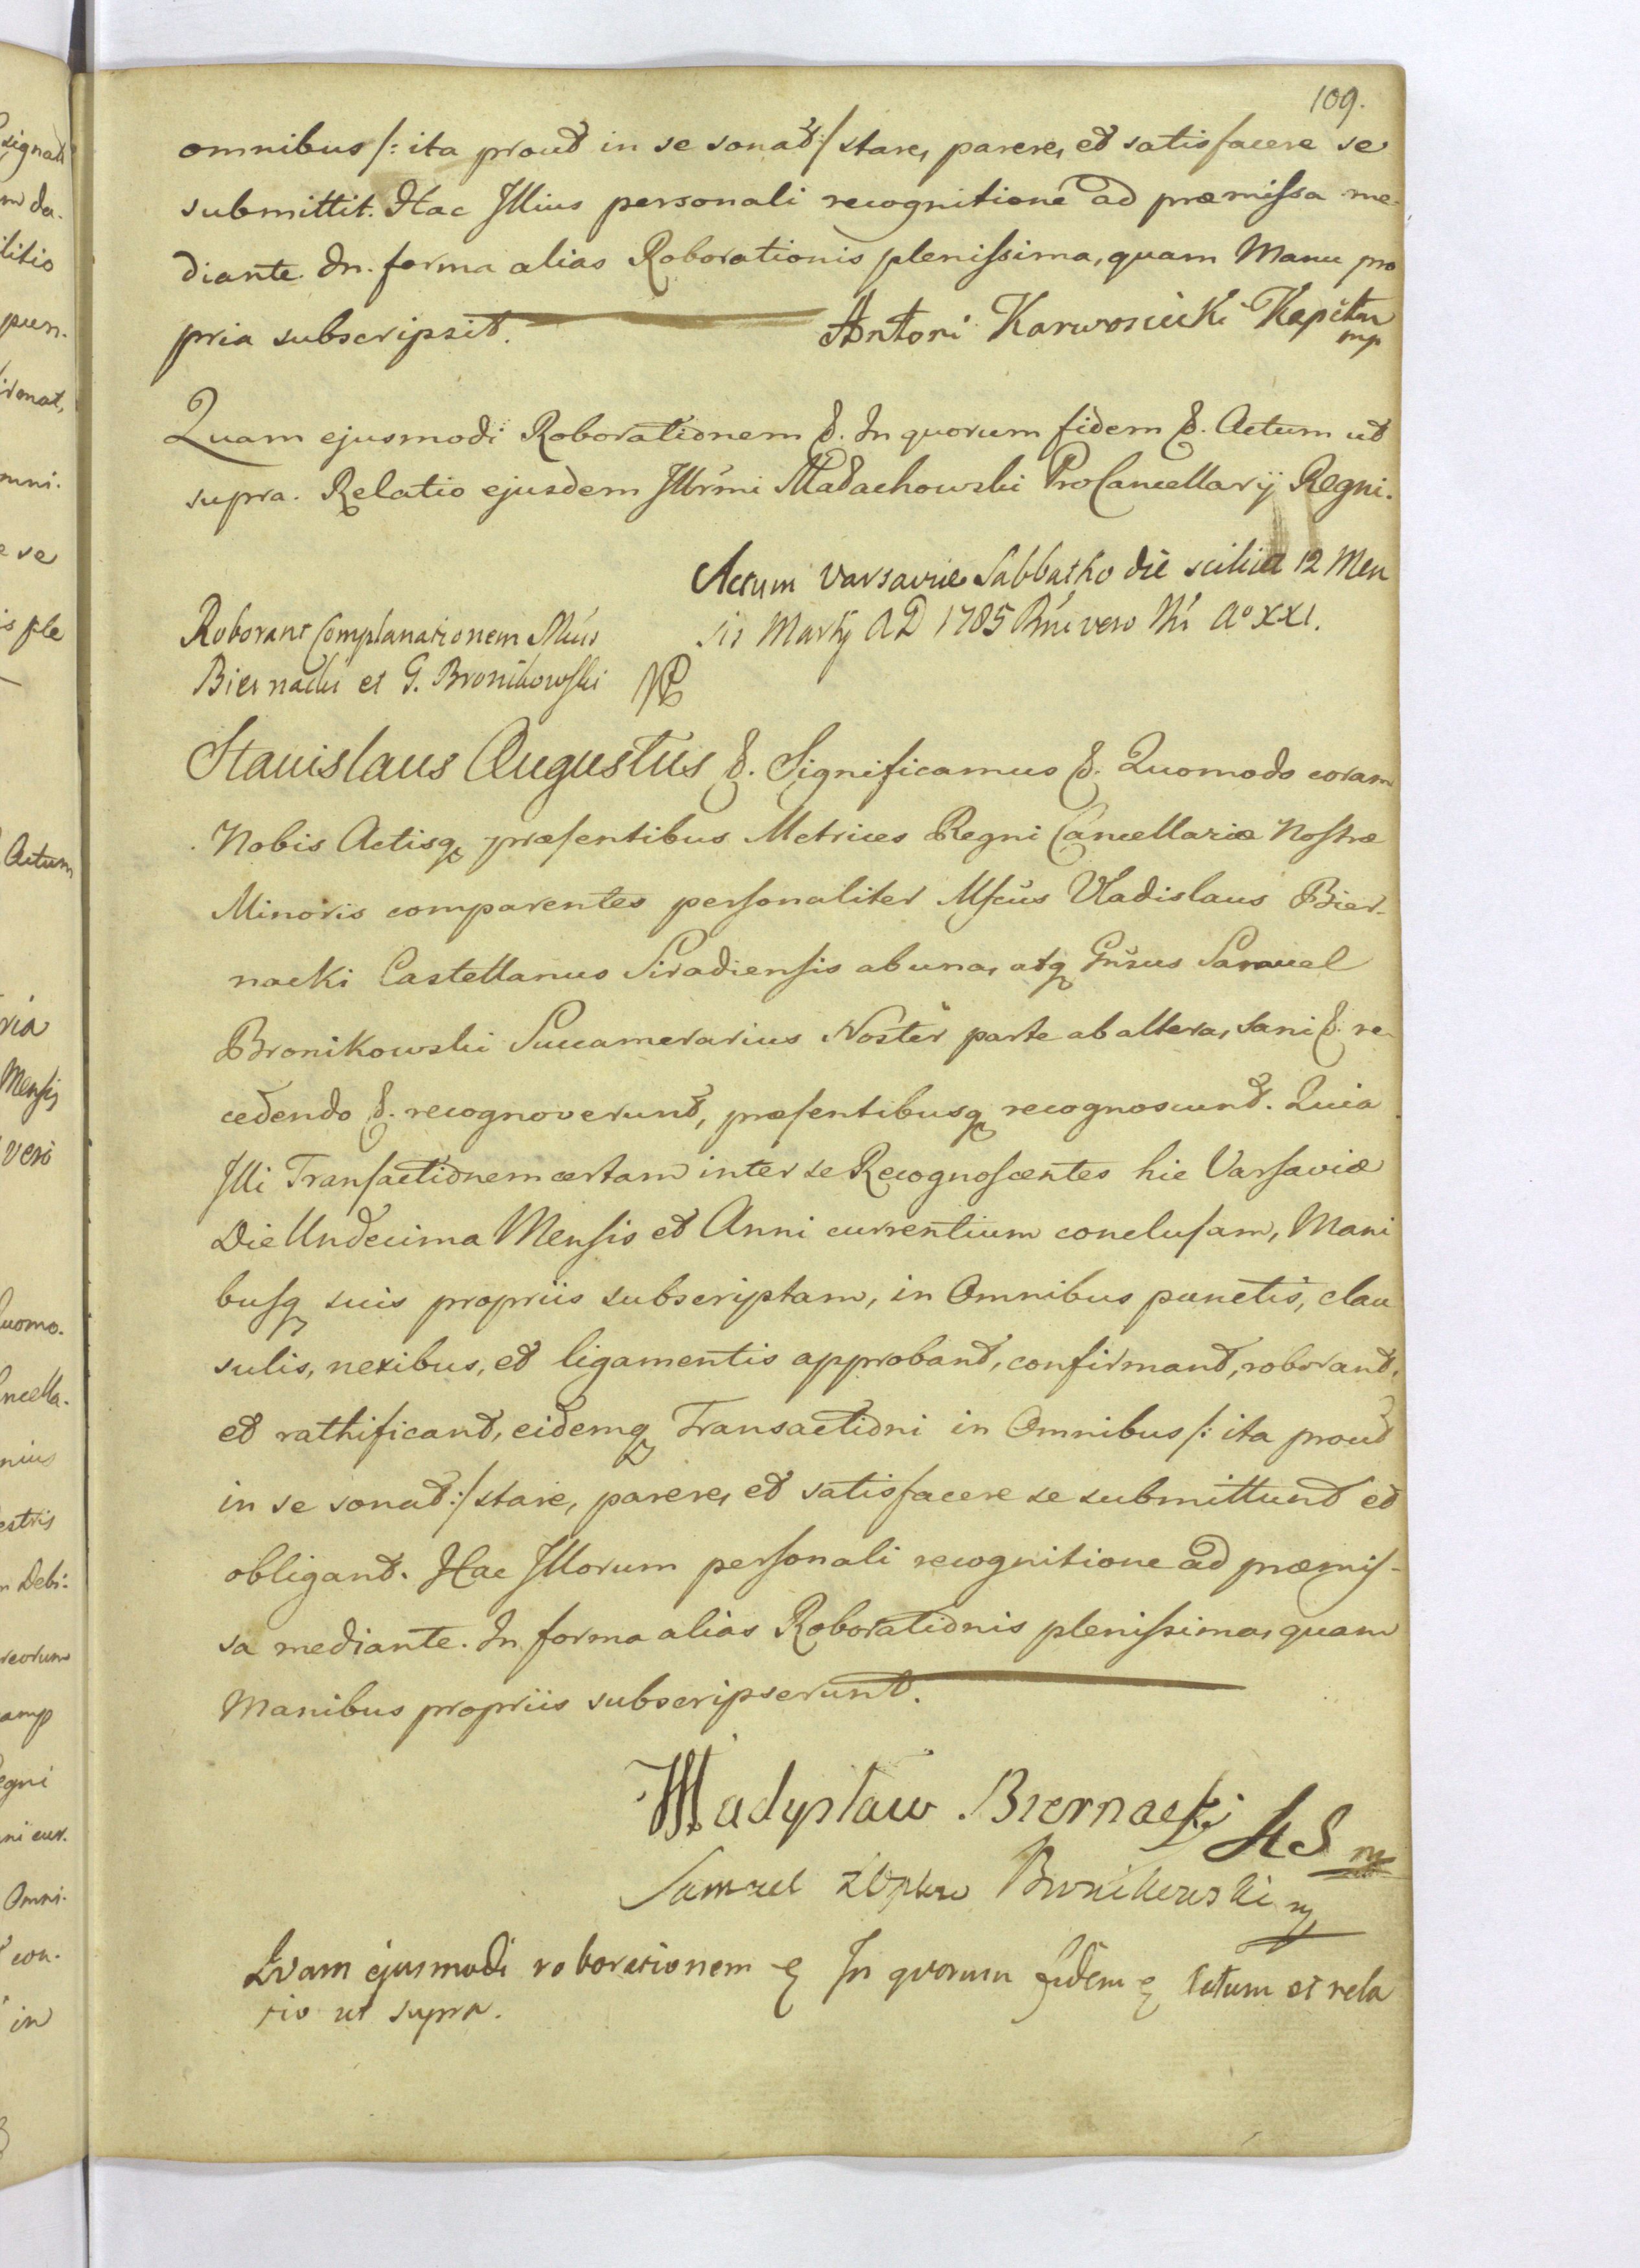 109.
omnibus /: ita prout in se sonat :/ stare, parere, et satisfacere se
submittit. Hac Illius personali recognitione ad præmissa me-
diante. In forma alias Roborationis plenissima, quam Manu pro
pria subscripsit. Antoni Karwosiecki Kapitan
mp
Quam ejusmodi Roborationem &. In quorum fidem &. Actum ut
supra. Relatio ejusdem Illrmi Małachowski ProCancellarij Regni.
Actum Varsaviæ Sabbatho die scilicet 12 Men
sis Martij A D 1785 Rni vero Nri Aº XXI.
Roborant Complanationem Mcus
Biernacki et G. Bronikowski
Stanislaus Augustus &. Significamus &. Quomodo coram
Nobis Actisq præsentibus Metrices Regni Cancellariæ Nostræ
Minoris comparentes personaliter Mfcus Vladislaus Bier-
nacki Castellanus Siradiensis ab una, atq Gnrsus Samuel
Bronikowski Succamerarius Noster parte ab altera, sani &. re-
cedendo &. recognoverunt, præsentibusq recognoscunt. Quia
Illi Transactionem certam inter se Recognoscentes hic Varsaviæ
Die Undecima Mensis et Anni currentium conclusam, Mani
busq suis propriis subscriptam, in Omnibus punctis, clau
sulis, nexibus, et ligamentis approbant, confirmant, roborant,
et rathificant, eidemq Transactioni in Omnibus /: ita prout
in se sonat :/ stare, parere, et satisfacere se submittunt et
obligant. Hac Illorum personali recognitione ad præmis-
sa mediante. In forma alias Roborationis plenissima, quam
Manibus propriis subscripserunt.
Władysław Biernacki KS mp
Samuel z Oppłn Bronikowski mp
Qvam ejusmodi roborationem & In qvorum fidem & Actum et rela
tio ut supra.